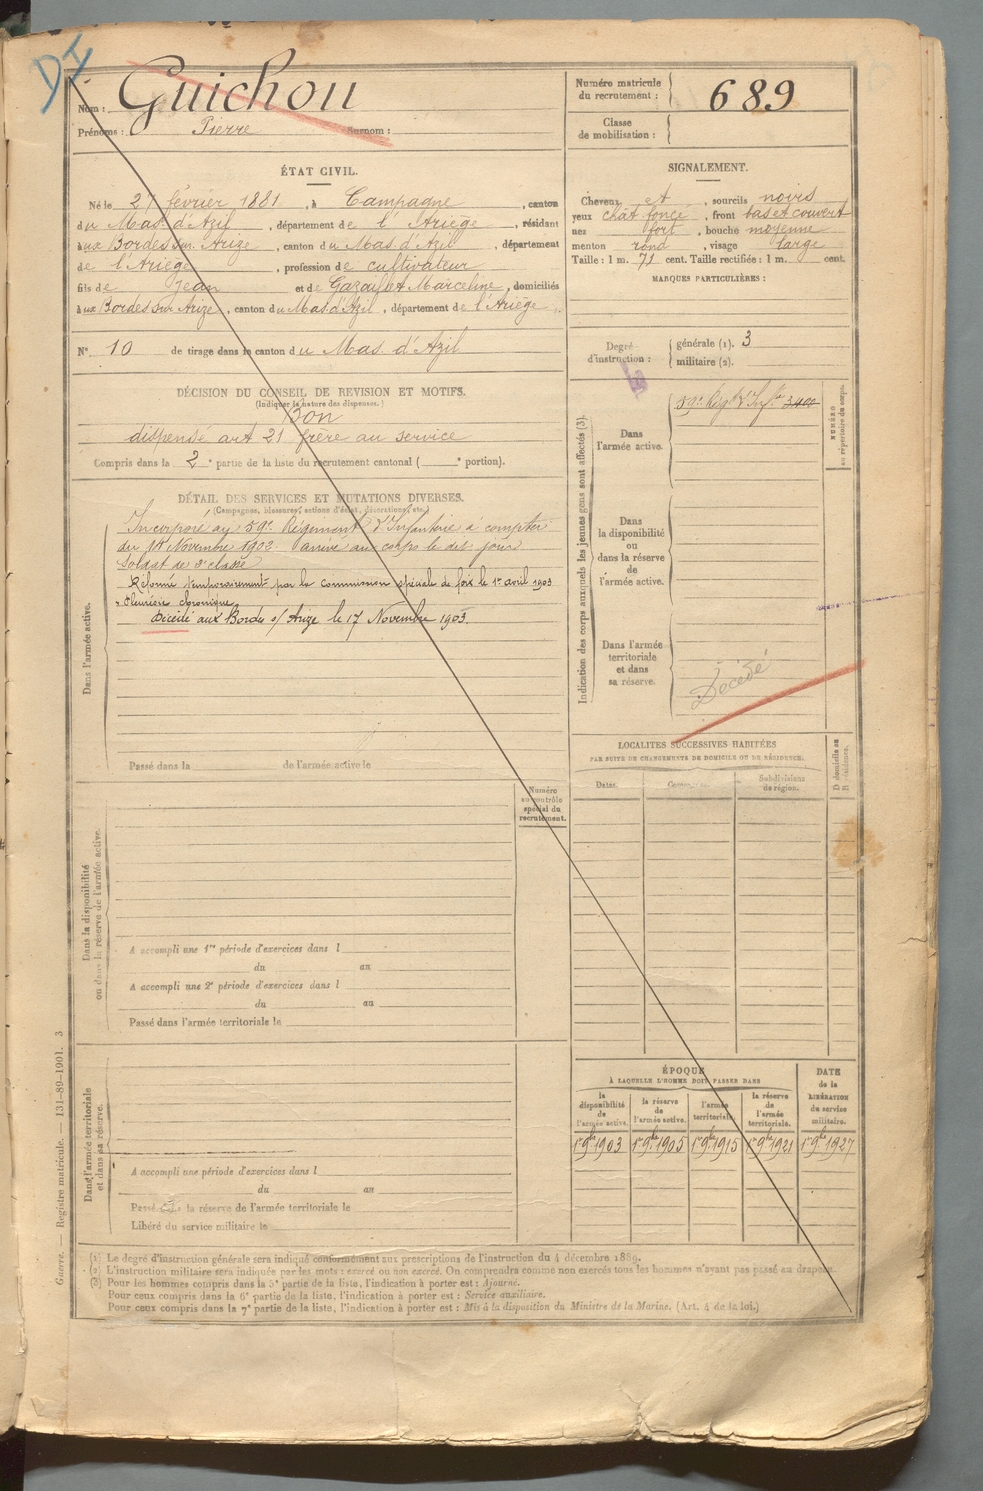 DI
Nom : Guichou
Prénoms : Pierre Surnom :
Numéro matricule du recrutement : 689
Classe de mobilisation :
ÉTAT CIVIL.
Né le 27 février 1881, à Campagne, canton
du Mas d'Azil, département de l'Ariège, résidant
aux Bordes sur Arize, canton du Mas d'Azil, département
de l'Ariège, profession de cultivateur
fils de Jean et de Marceline, domiciliés
aux Bordes sur Arize, canton du Mas d'Azil, département de l'Ariège.
N° 10 de tirage dans le canton du Mas d'Azil
SIGNALEMENT.
Cheveux et, sourcils noirs
yeux chât foncé, front bas et couvert
nez fort, bouche moyenne
menton rond, visage large
Taille : 1 m. 71 cent. Taille rectifiée : 1 m. cent.
MARQUES PARTICULIÈRES :
Degré d'instruction : générale (1). 3
militaire (2).
DÉCISION DU CONSEIL DE REVISION ET MOTIFS.
(Indiquer la nature des dispenses.)
Bon
dispensé art 21 frère au service
Compris dans la 2e partie de la liste du recrutement cantonal ( e portion).
DÉTAIL DES SERVICES ET MUTATIONS DIVERSES.
(Campagnes, blessures, actions d'éclat, décorations, etc.)
Dans l'armée active.
Incorporé au 59e Régiment d'Infanterie à compter
du 14 Novembre 1902. arrivé au corps le dit jour
Soldat de 2e classe
Réformé temporairement par la Commission spéciale de foix le 1er avril 1903
Pleurésie chronique
Décédé aux Bordes s/ Arize le 17 Novembre 1903.
Passé dans la de l'armée active le
Indication des corps auxquels les jeunes gens sont affectés (3).
NUMÉRO au répertoire du corps.
Dans l'armée active.
59e Régt d'Infie 3400
Dans la disponibilité ou dans la réserve de l'armée active.
Dans l'armée territoriale et dans sa réserve.
Décédé
LOCALITÉS SUCCESSIVES HABITÉES
PAR SUITE DE CHANGEMENTS DE DOMICILE OU DE RÉSIDENCE.
Dates.
Communes.
Subdivisions de région.
D domicile ou R résidence.
Dans la disponibilité ou dans la réserve de l'armée active.
Numéro au contrôle spécial du recrutement.
A accompli une 1re période d'exercices dans l
du au
A accompli une 2e période d'exercices dans l
du au
Passé dans l'armée territoriale le
Dans l'armée territoriale et dans sa réserve.
A accompli une période d'exercices dans l
du au
Passé dans la réserve de l'armée territoriale le
Libéré du service militaire le
ÉPOQUE
À LAQUELLE L'HOMME DOIT PASSER DANS
la disponibilité de l'armée active.
la réserve de l'armée active.
l'armée territoriale.
la réserve de l'armée territoriale.
DATE de la LIBÉRATION du service militaire.
1er 9bre 1903
1er 9bre 1905
1er 9bre 1915
1er 9bre 1921
1er 9bre 1927
(1) Le degré d'instruction générale sera indiqué conformément aux prescriptions de l'instruction du 4 décembre 1889.
(2) L'instruction militaire sera indiquée par les mots : exercé ou non exercé. On comprendra comme non exercés tous les hommes n'ayant pas passé au drapeau.
(3) Pour les hommes compris dans la 5e partie de la liste, l'indication à porter est : Ajourné.
Pour ceux compris dans la 6e partie de la liste, l'indication à porter est : Service auxiliaire.
Pour ceux compris dans la 7e partie de la liste, l'indication à porter est : Mis à la disposition du Ministre de la Marine. (Art. 4 de la loi.)
Guerre. — Registre matricule. — 131-89-1901. 3